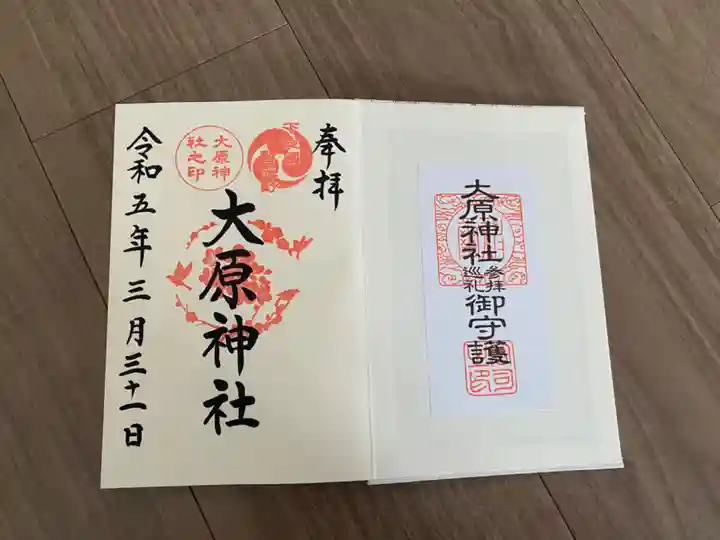 大原神社参拝巡礼御守護
奉拝
大原神社之印
大原神社
令和五年三月三十一日